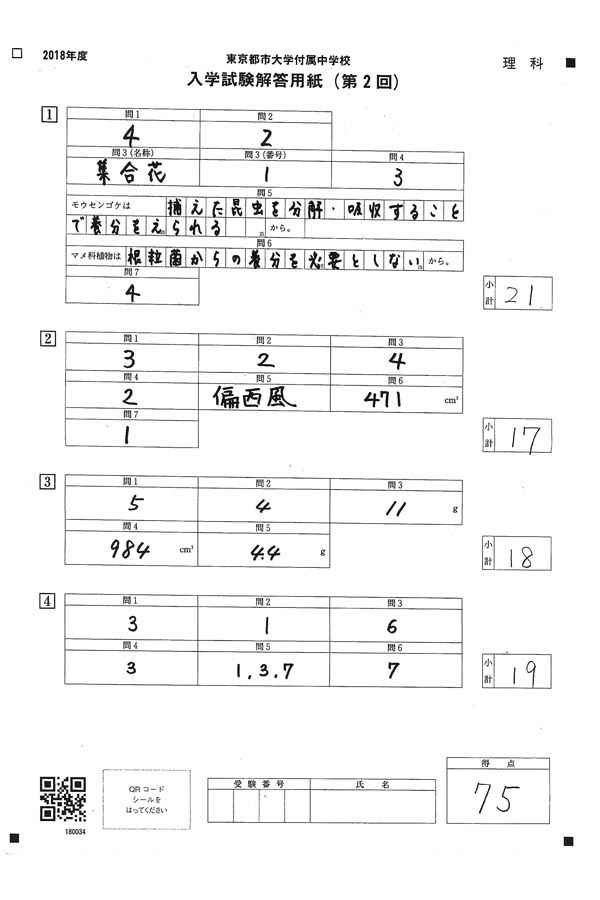 2018年度
東京都市大学付属中学校
入学試験解答用紙(第2回)
理科
1
問1 問2
4 2
問3(名称) 問3(番号) 問4
集合花 1 3
問5
モウセンゴケは 捕えた昆虫を分解・吸収すること
で養分をえられる 25 から。
問6
マメ科植物は 根粒菌からの養分を必要としない から。
問7
4
小計 21
2
問1 問2 問3
3 2 4
問4 問5 問6
2 偏西風 471 cm³
問7
1
小計 17
3
問1 問2 問3
5 4 11 g
問4 問5
984 cm³ 4.4 g
小計 18
4
問1 問2 問3
3 1 6
問4 問5 問6
3 1,3,7 7
小計 19
180034
QRコード
シールを
はってください
受験番号 氏名
得点
75